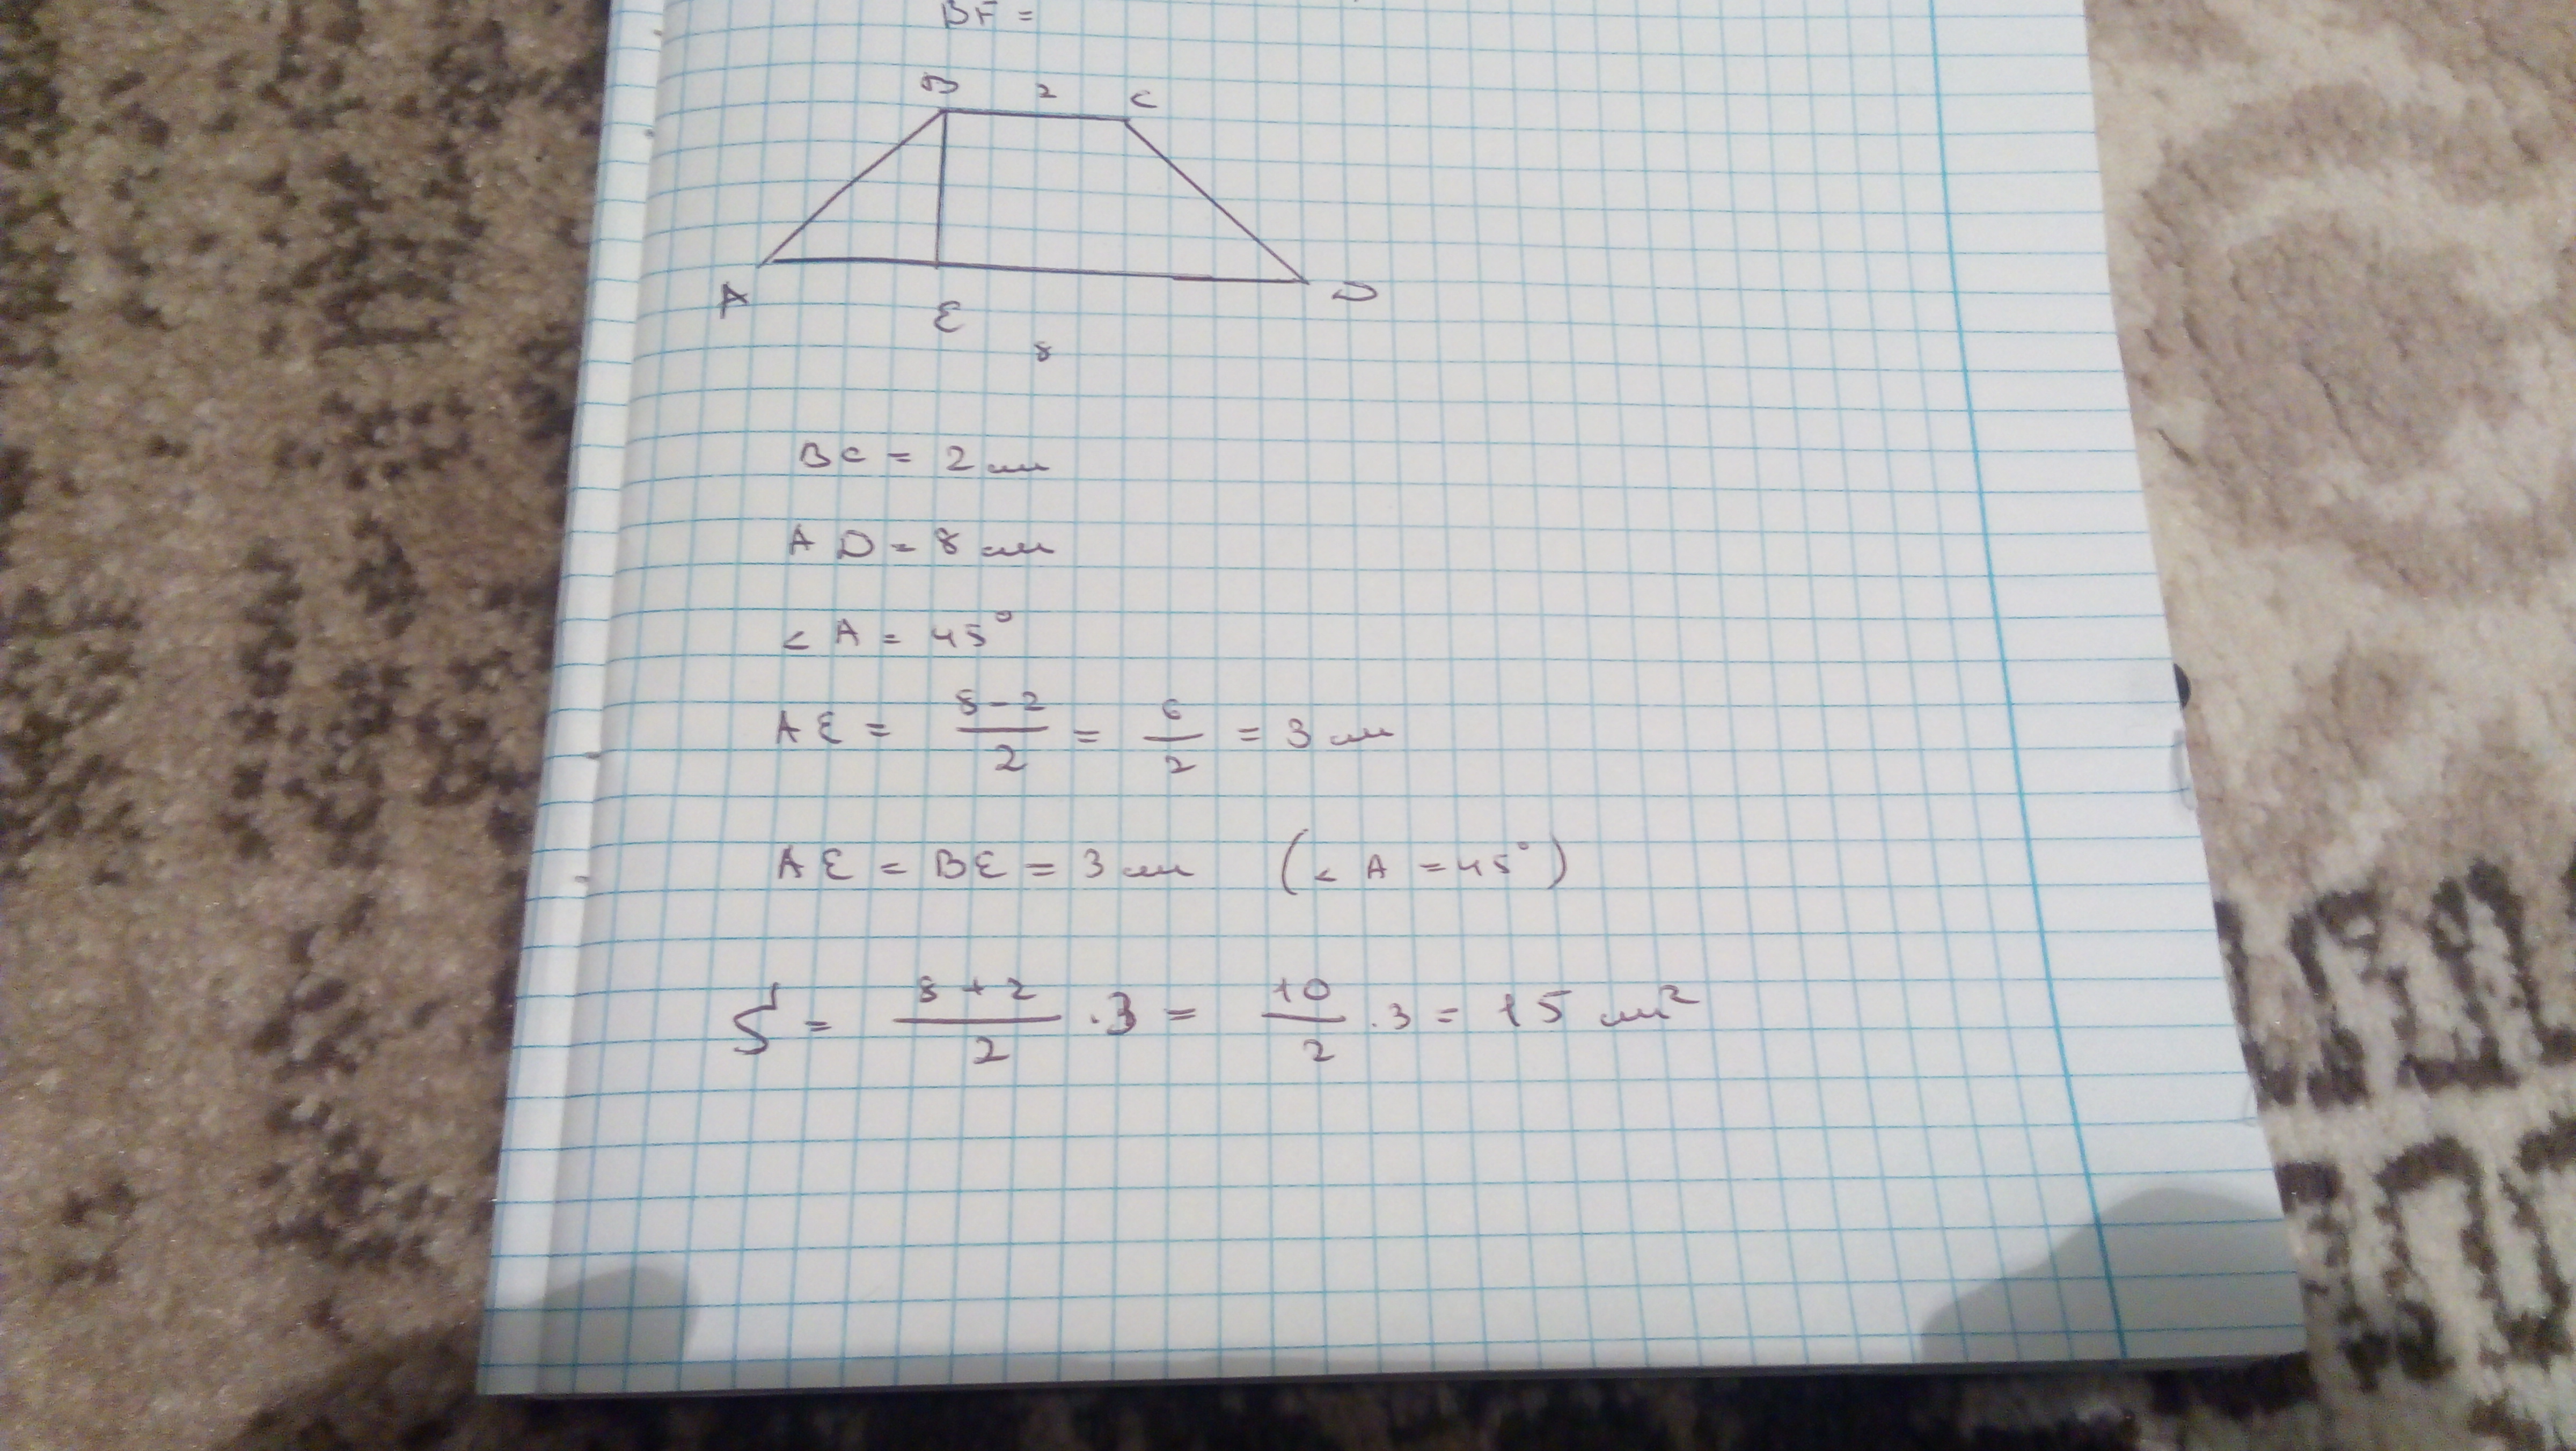 BF =
B 2 C
A E D
8
BC = 2 см
AD = 8 см
< A = 45°
AE = 8 - 2 / 2 = 6 / 2 = 3 см
AE = BE = 3 см (< A = 45°)
S = 8 + 2 / 2 . 3 = 10 / 2 . 3 = 15 см²